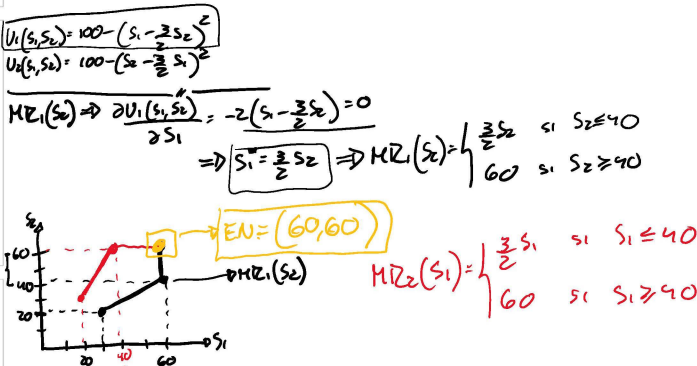 U₁(s₁,s₂) = 100 - (s₁ - 3/2 s₂)²
U₂(s₁,s₂) = 100 - (s₂ - 3/2 s₁)²
MR₁(s₂) ⇒ ∂U₁(s₁,s₂)/∂s₁ = -2(s₁ - 3/2 s₂) = 0
⇒ s₁* = 3/2 s₂ ⇒ MR₁(s₂) = { 3/2 s₂ si s₂ ≤ 40
60 si s₂ ≥ 40
EN = (60,60)
MR₂(s₁) = { 3/2 s₁ si s₁ ≤ 40
60 si s₁ ≥ 40
s₂
60
40
20
→ MR₁(s₂)
20 40 60
s₁